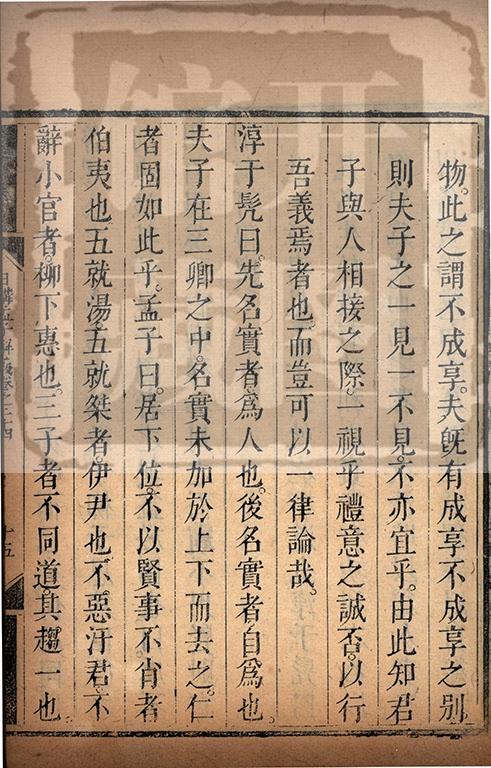 物。此之謂不成享。夫旣有成享不成享之別
則夫子之一見一不見。不亦宜乎。由此知君
子與人相接之際。一視乎禮意之誠否。以行
吾義焉者也。而豈可以一律論哉。
淳于髡曰。先名實者。爲人也。後名實者。自爲也。
夫子在三卿之中。名實未加於上下而去之。仁
者固如此乎。孟子曰。居下位。不以賢事不肖者
伯夷也。五就湯。五就桀者。伊尹也。不惡汙君。不
辭小官者。柳下惠也。三子者不同道。其趨一也
十五